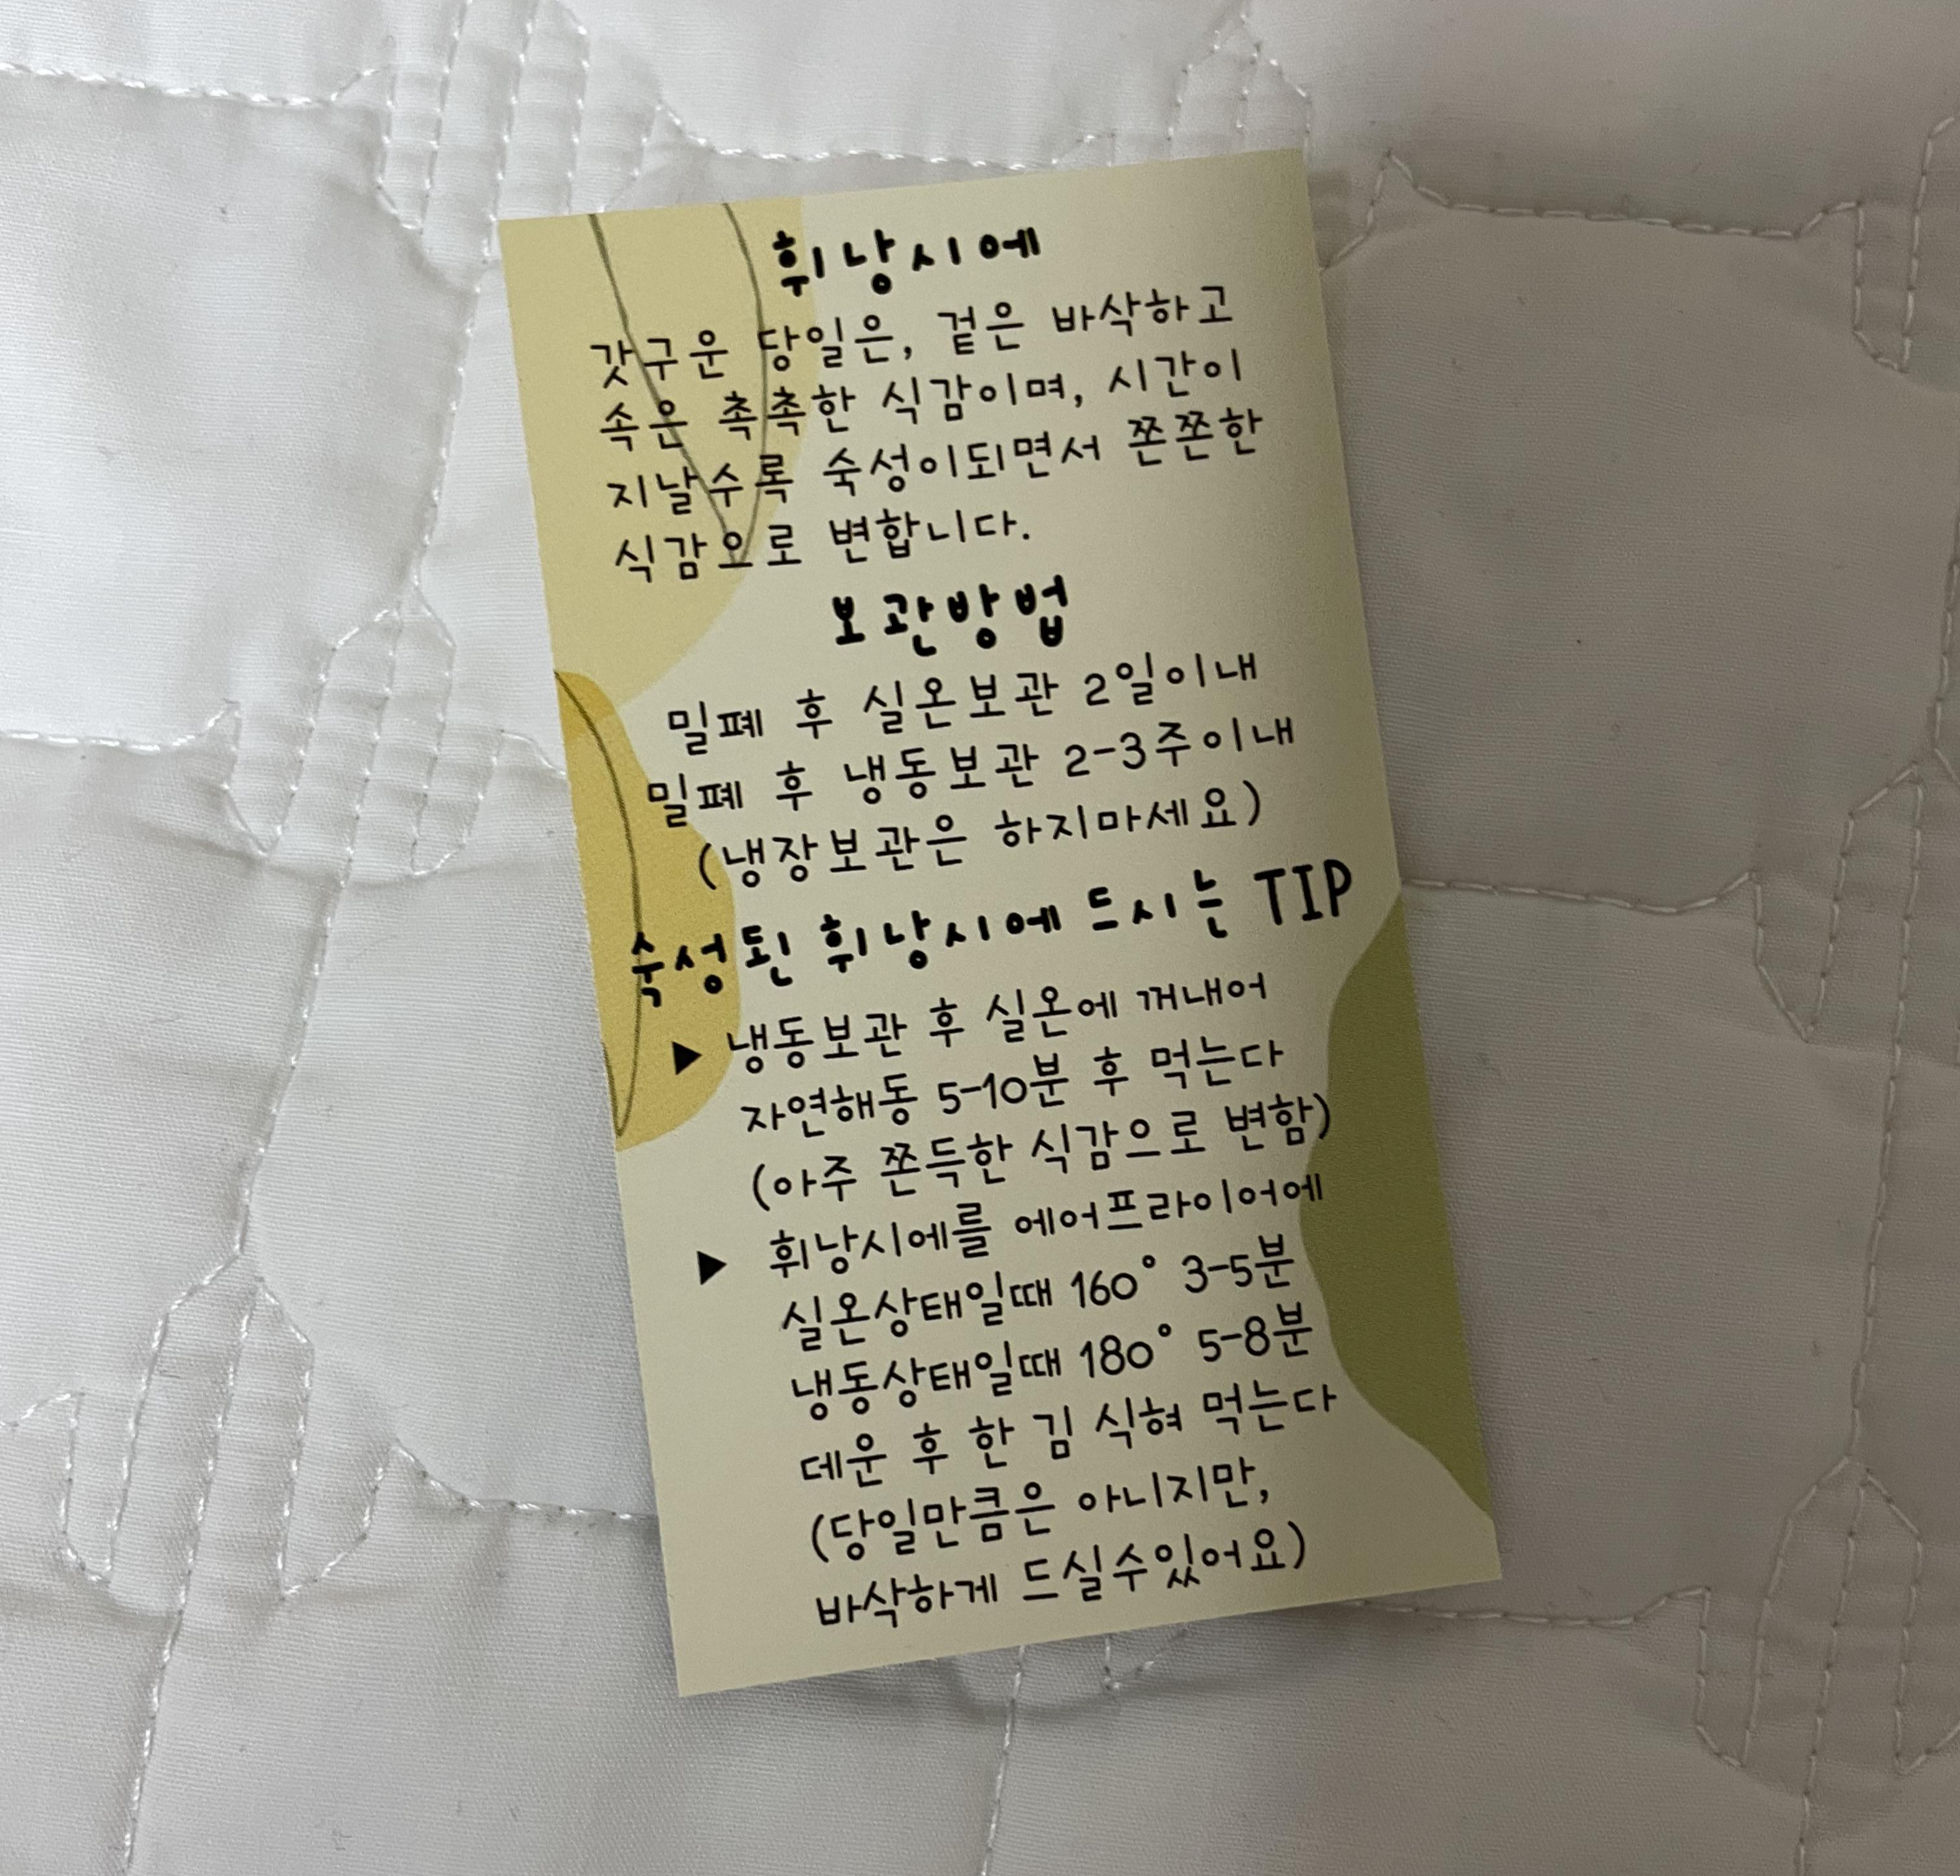 휘낭시에
갓구운 당일은, 겉은 바삭하고
속은 촉촉한 식감이며, 시간이
지날수록 숙성이되면서 쫀쫀한
식감으로 변합니다.
보관방법
밀폐 후 실온보관 2일이내
밀폐 후 냉동보관 2-3주이내
(냉장보관은 하지마세요)
숙성된 휘낭시에 드시는 TIP
▶ 냉동보관 후 실온에 꺼내어
자연해동 5-10분 후 먹는다
(아주 쫀득한 식감으로 변함)
▶ 휘낭시에를 에어프라이어에
실온상태일때 160° 3-5분
냉동상태일때 180° 5-8분
데운 후 한 김 식혀 먹는다
(당일만큼은 아니지만,
바삭하게 드실수있어요)